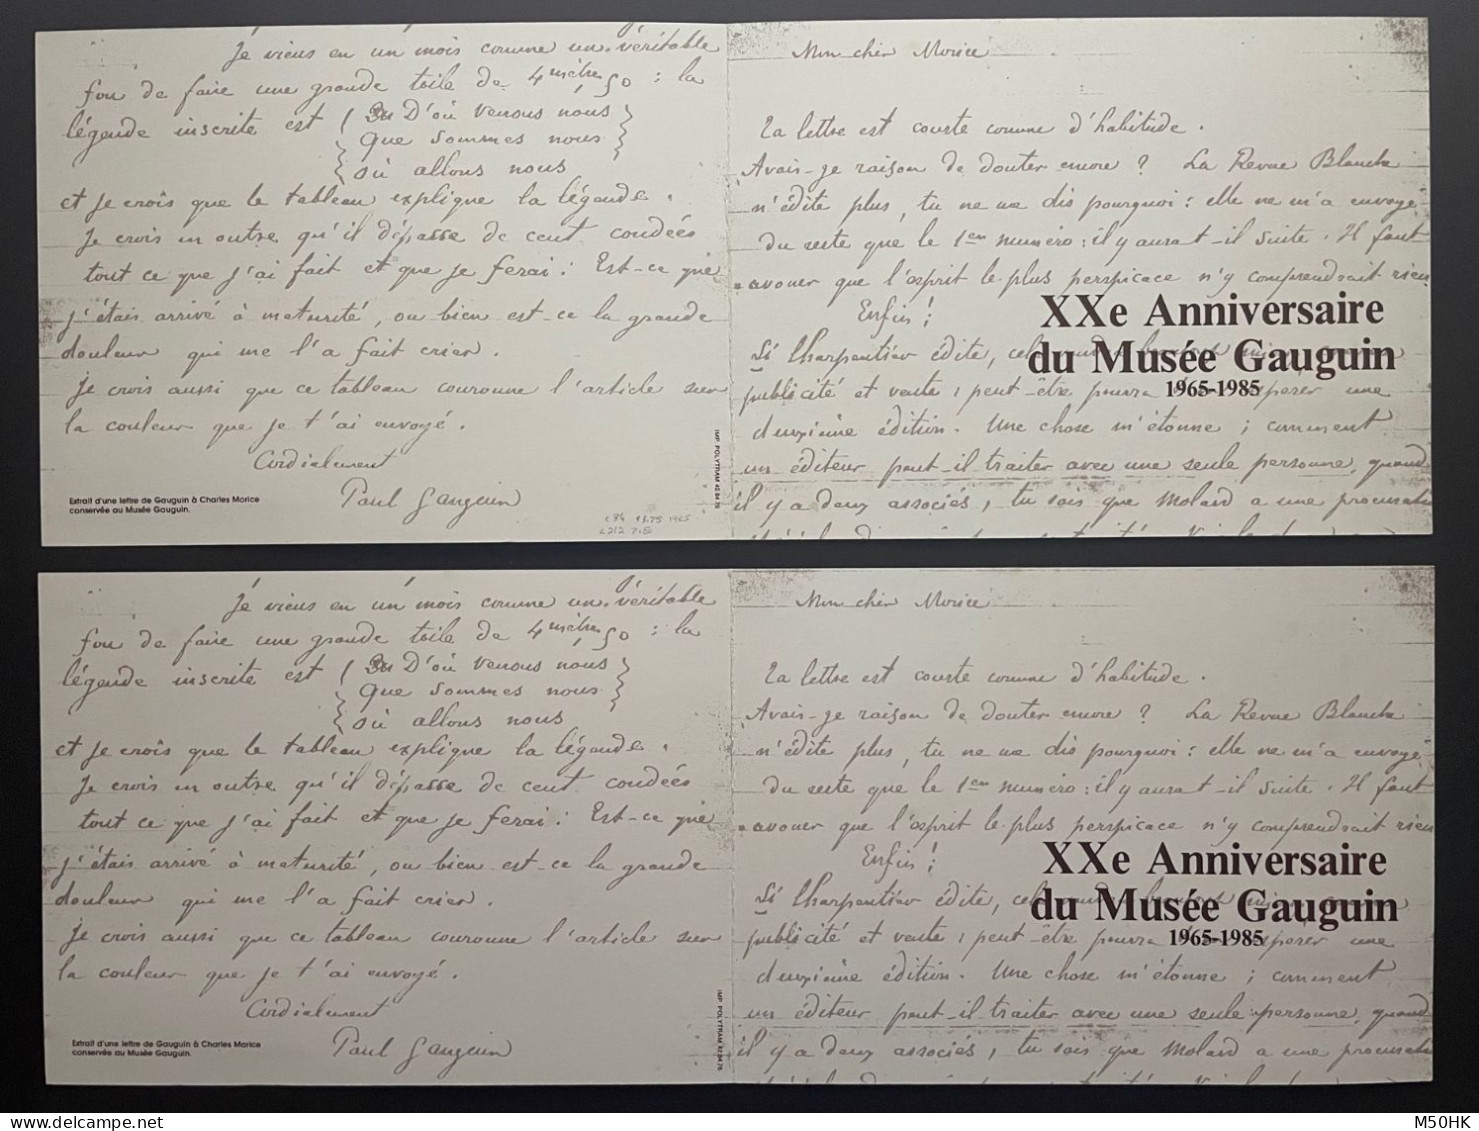 Je viens en un mois comme un véritable
fou de faire une grande toile de 4 mètres 50 : la
légende inscrite est ( D'où venons nous
Que sommes nous
où allons nous
et je crois que le tableau explique la légende.
Je crois en outre qu'il dépasse de cent coudées
tout ce que j'ai fait et que je ferai : Est-ce que
j'étais arrivé à maturité, ou bien est-ce la grande
douleur qui me l'a fait crier.
Je crois aussi que ce tableau couronne l'article sur
la couleur que je t'ai envoyé.
Cordialement
Paul Gauguin
Extrait d'une lettre de Gauguin à Charles Morice
conservée au Musée Gauguin.
IMP. POLYTRAM 42.94.76
Mon cher Morice
La lettre est courte comme d'habitude.
Avais-je raison de douter encore ? La Revue Blanche
n'édite plus, tu ne me dis pourquoi : elle ne m'a envoyé
du reste que le 1er numéro : il y aurait-il suite. Il faut
avouer que l'esprit le plus perspicace n'y comprendrait rien
Enfin !
XXe Anniversaire
Si Charpentier édite,
du Musée Gauguin
publicité et vente ; peut-être pourra
1965-1985
une
deuxième édition. Une chose m'étonne ; comment
un éditeur peut-il traiter avec une seule personne, quand
il y a deux associés, tu sais que Molard a une procurat
Je viens en un mois comme un véritable
fou de faire une grande toile de 4 mètres 50 : la
légende inscrite est ( D'où venons nous
Que sommes nous
où allons nous
et je crois que le tableau explique la légende.
Je crois en outre qu'il dépasse de cent coudées
tout ce que j'ai fait et que je ferai : Est-ce que
j'étais arrivé à maturité, ou bien est-ce la grande
douleur qui me l'a fait crier.
Je crois aussi que ce tableau couronne l'article sur
la couleur que je t'ai envoyé.
Cordialement
Paul Gauguin
Extrait d'une lettre de Gauguin à Charles Morice
conservée au Musée Gauguin.
IMP. POLYTRAM 42.94.76
Mon cher Morice
La lettre est courte comme d'habitude.
Avais-je raison de douter encore ? La Revue Blanche
n'édite plus, tu ne me dis pourquoi : elle ne m'a envoyé
du reste que le 1er numéro : il y aurait-il suite. Il faut
avouer que l'esprit le plus perspicace n'y comprendrait rien
Enfin !
XXe Anniversaire
Si Charpentier édite,
du Musée Gauguin
publicité et vente ; peut-être pourra
1965-1985
une
deuxième édition. Une chose m'étonne ; comment
un éditeur peut-il traiter avec une seule personne, quand
il y a deux associés, tu sais que Molard a une procurat
delcampe.net
M50HK